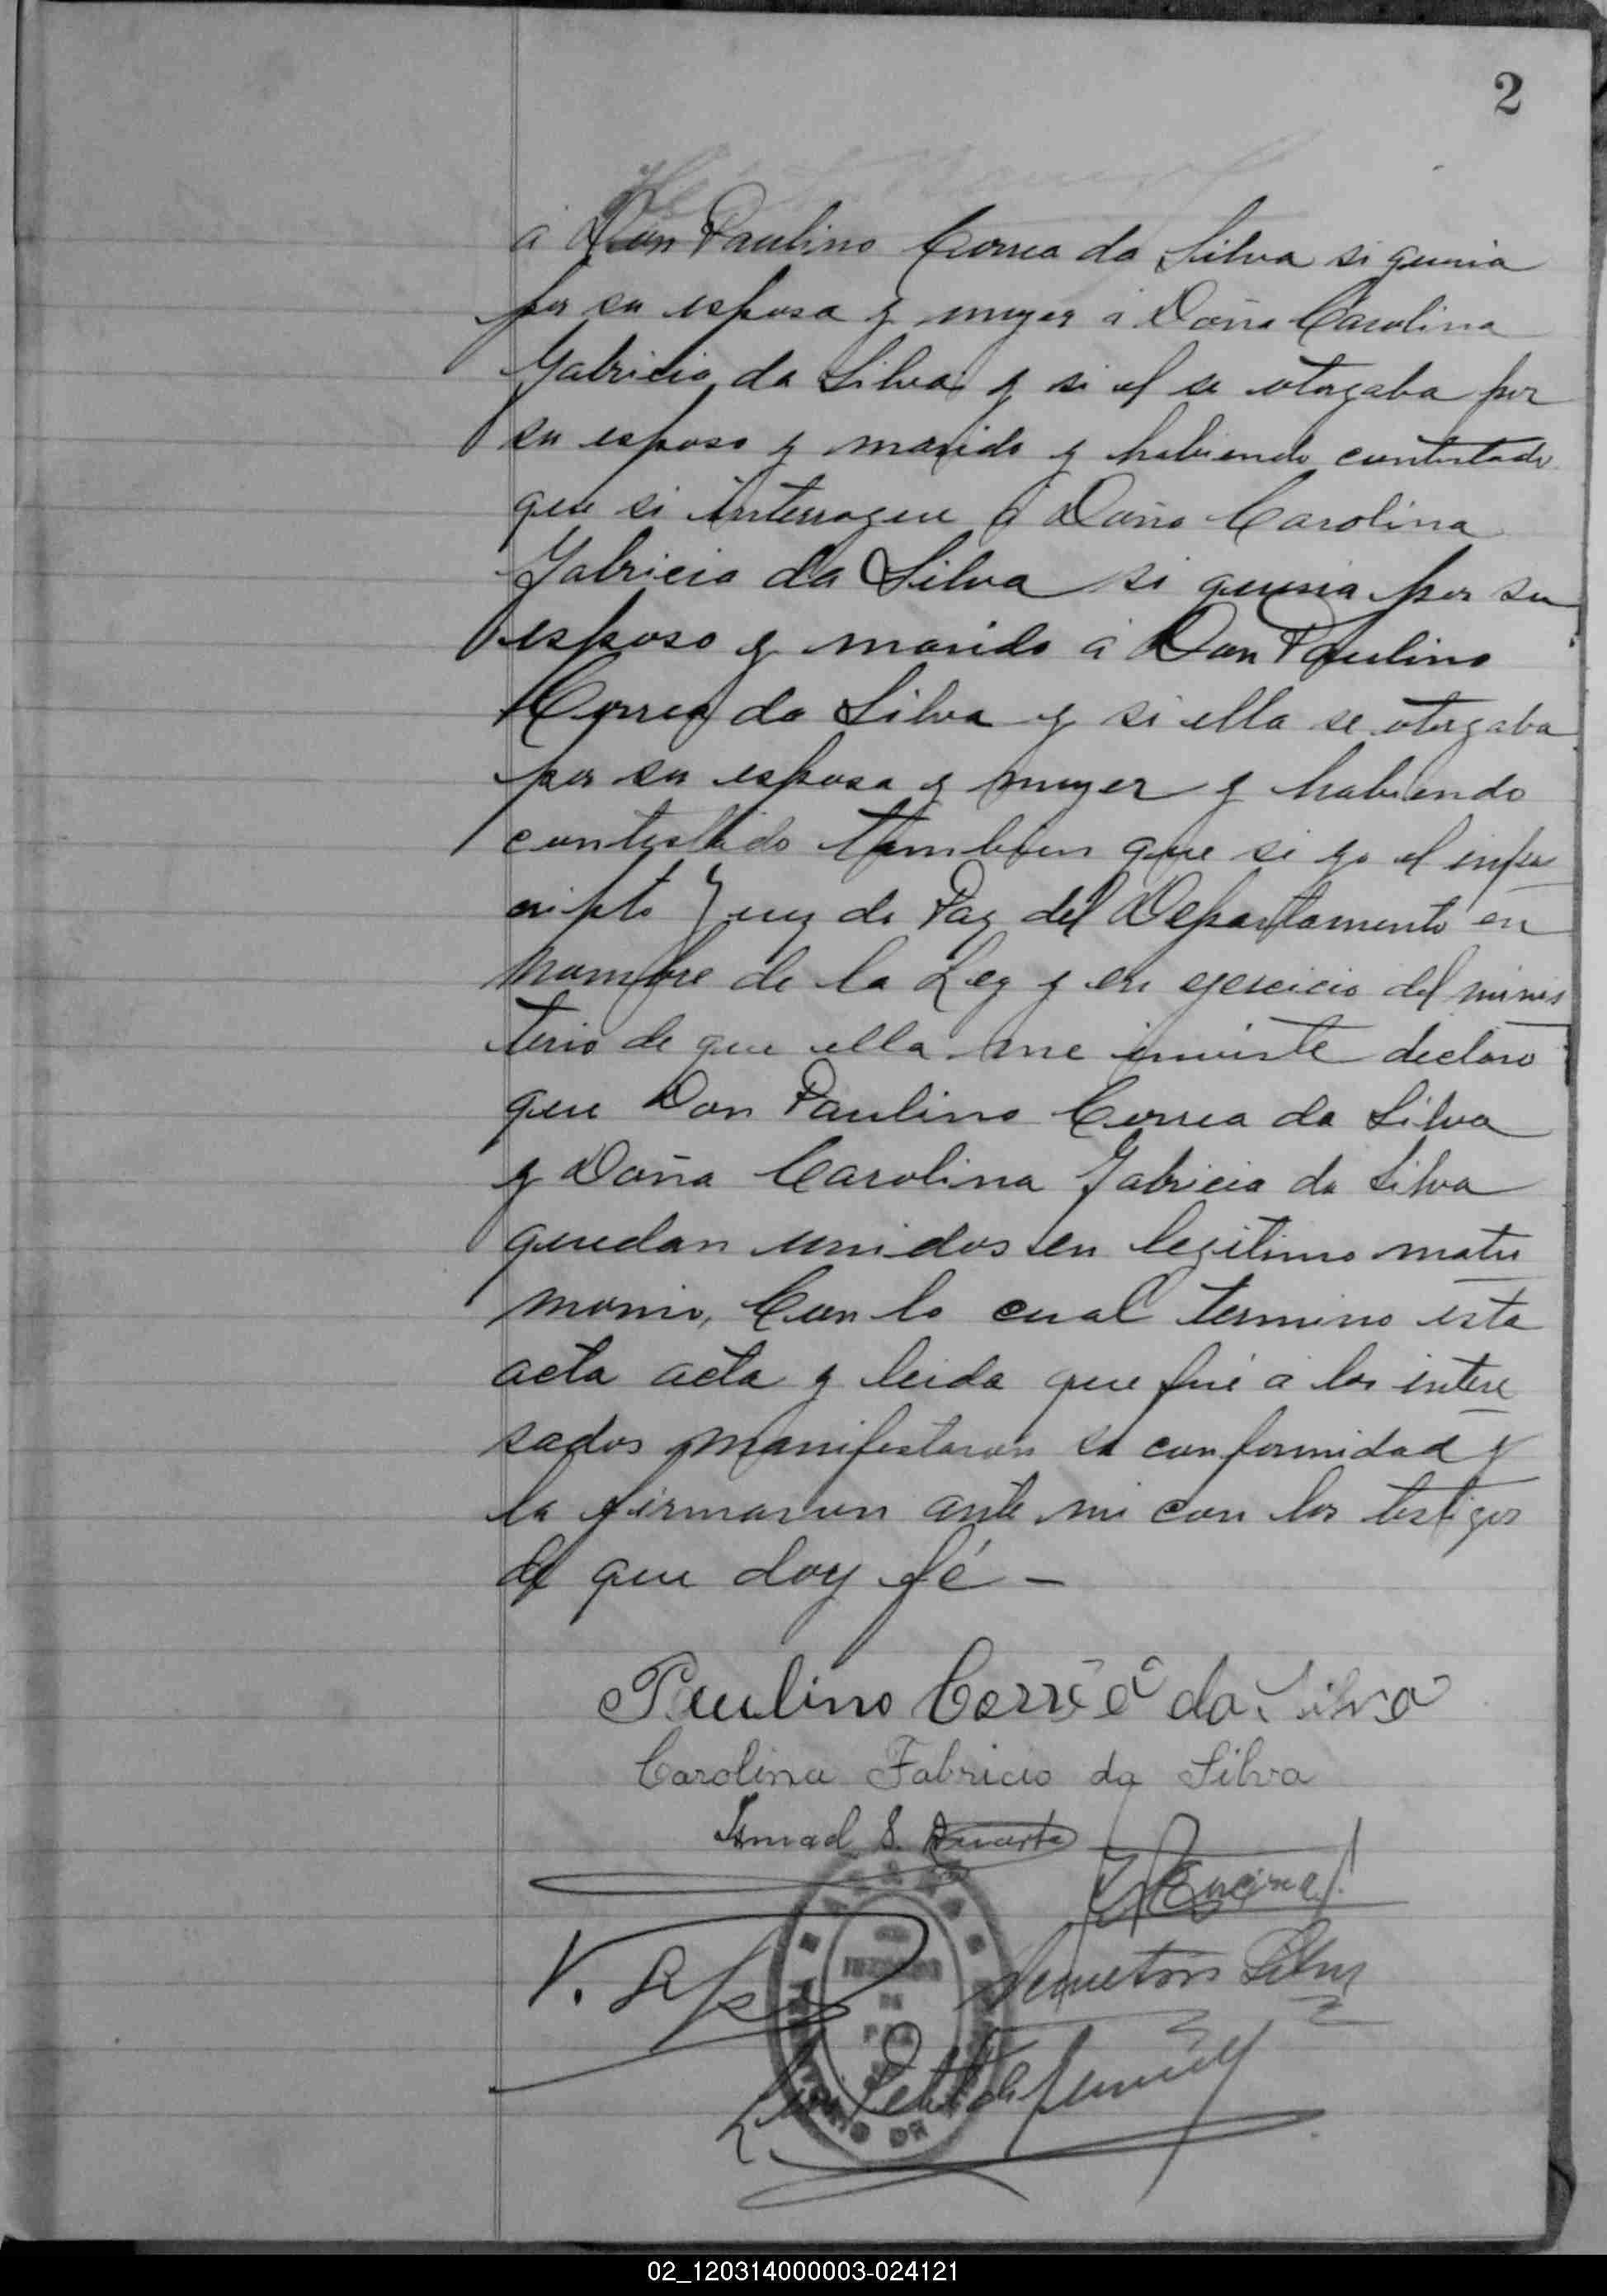 2
á Don Paulino Correa da Silva si queria
por su esposa y muger á Doña Carolina
Fabricio da Silva y si el se otorgaba por
su esposo y marido y habiendo contestado
que si interrogue á Doña Carolina
Fabricio da Silva si queria por su
esposo y marido á Don Paulino
Correa da Silva y si ella se otorgaba
por su esposa y muger y habiendo
contestado tambien que si yo el infra
cripto Juez de Paz del Departamento en
nombre de la Ley y en ejercicio del minis
terio de que ella me inviste declaro
que Don Paulino Correa da Silva
y Doña Carolina Fabricio da Silva
quedan unidos en legitimo matri
monio, Con lo cual termino esta
acta acta y leida que fué á los intere
sados manifestaron su conformidad y
la firmaron ante mi con los testigos
de que doy fé -
Paulino Corrêa da Silva
Carolina Fabricio da Silva
Ismael S. Duarte
Demetrio Silva
V.
Luis
JUZGADO
DE
PAZ
02_120314000003-024121